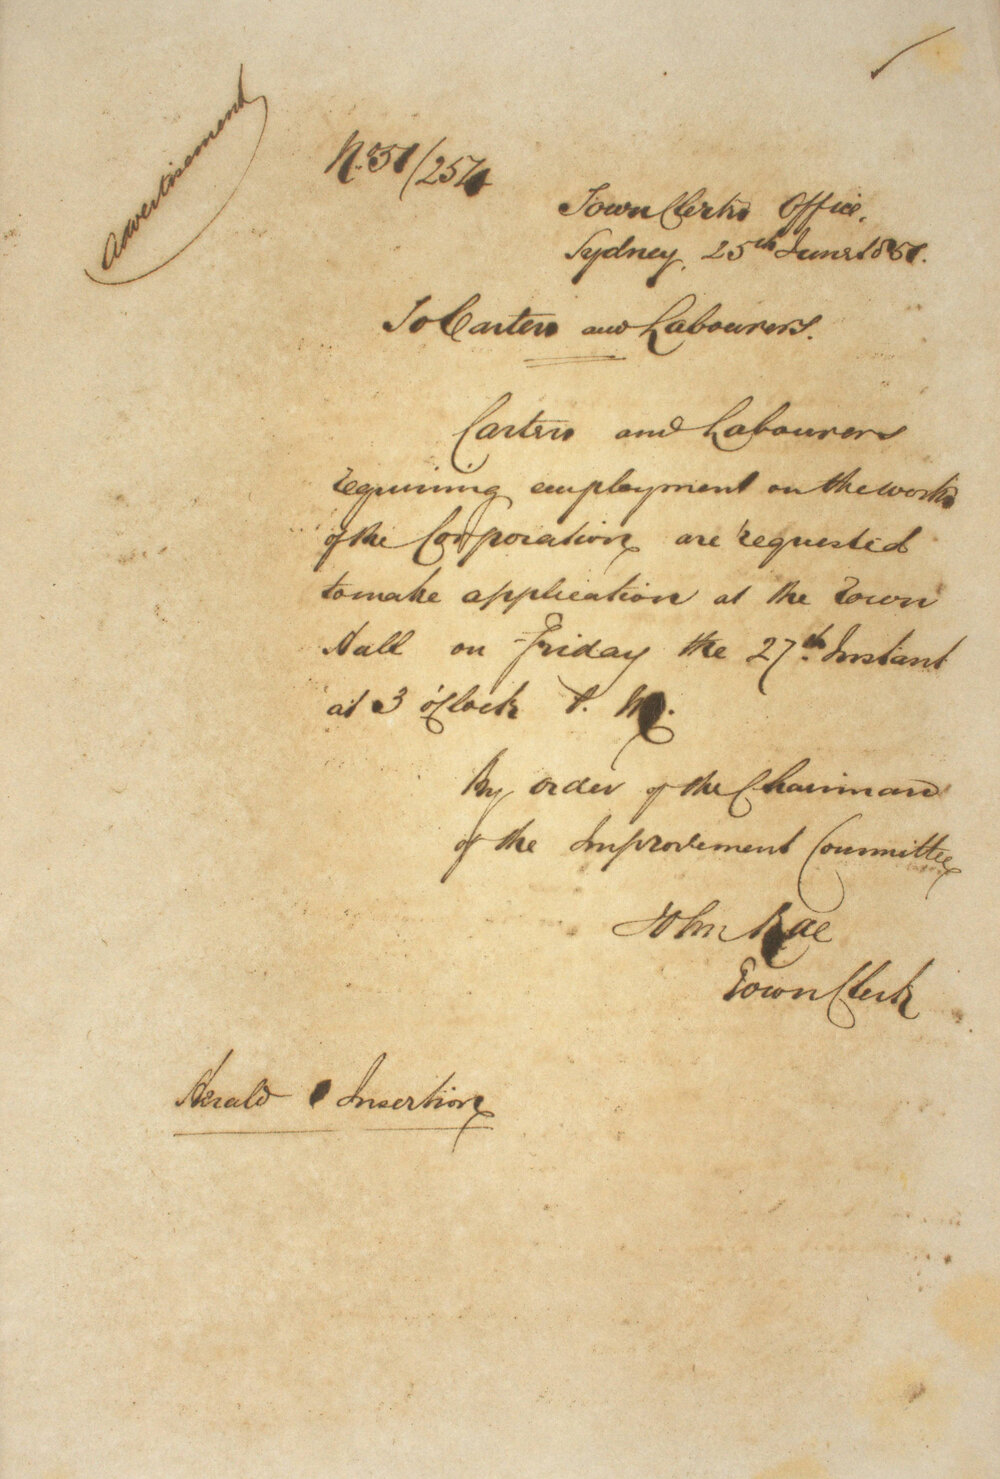 Advertisement
No. 51/254
Town Clerks Office,
Sydney, 25th June 1851.
To Carters and Labourers.
Carters and Labourers
requiring employment on the works
of the Corporation are requested
to make application at the Town
Hall on Friday the 27th. Instant
at 3 o'Clock P. M.
By order of the Chairman
of the Improvement Committee
John Rae
Town Clerk
Herald 1 Insertion